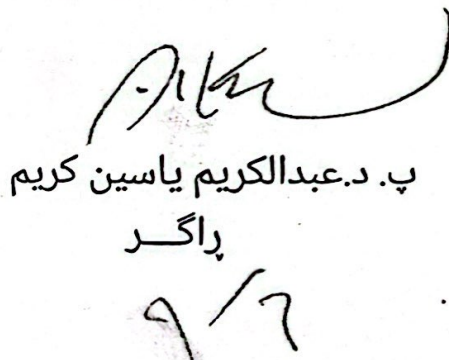 پ. د.عبدالكريم ياسين كريم
ڕاگــر
٩/٦